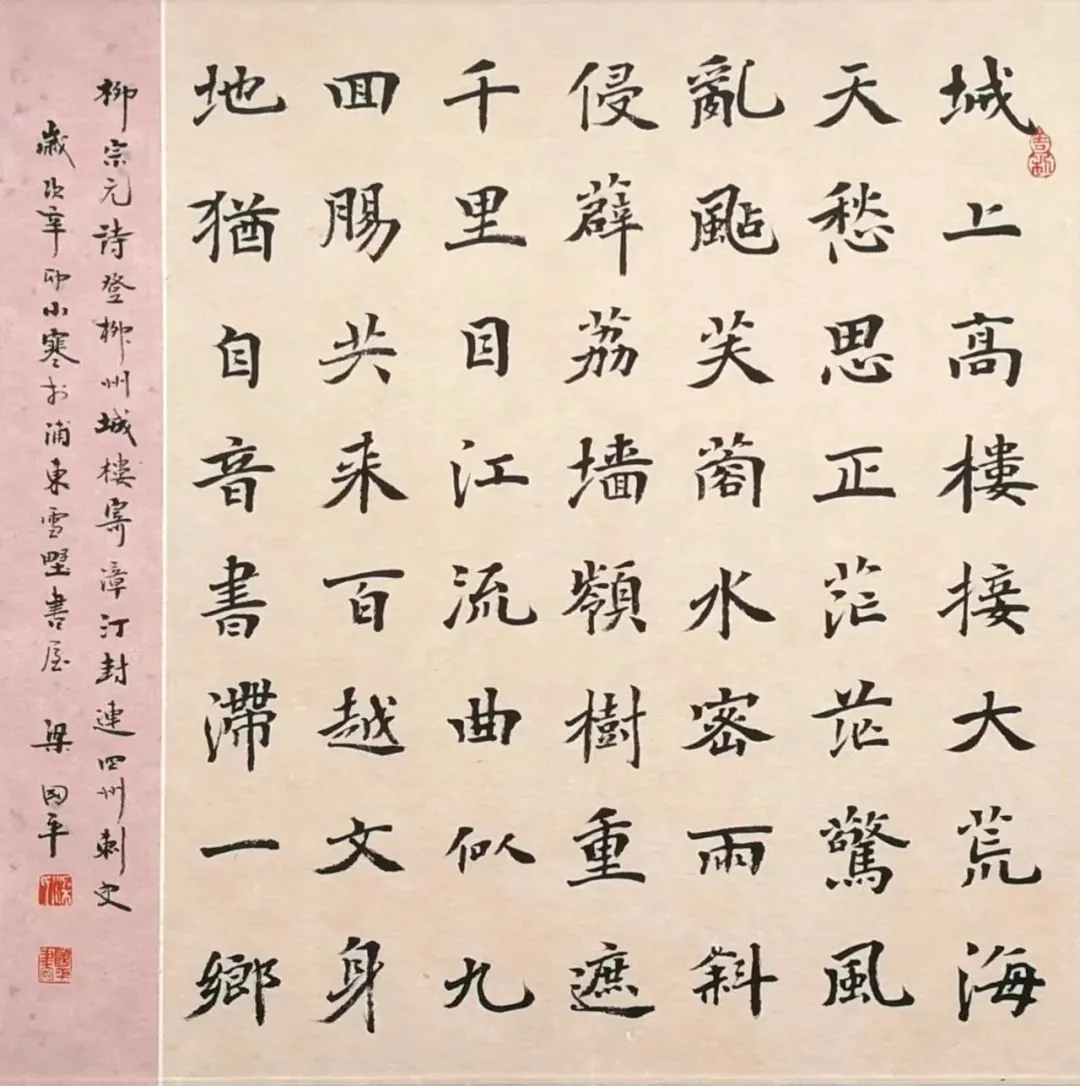 城上高樓接大荒海
天愁思正茫茫驚風
亂颭芙蓉水密雨斜
侵薜荔墙嶺樹重遮
千里目江流曲似九
回腸共来百越文身
地猶自音書滯一鄉
柳宗元詩登柳州城樓寄漳汀封連四州刺史
歲次辛卯小寒於浦東雪墅書屋 梁国平